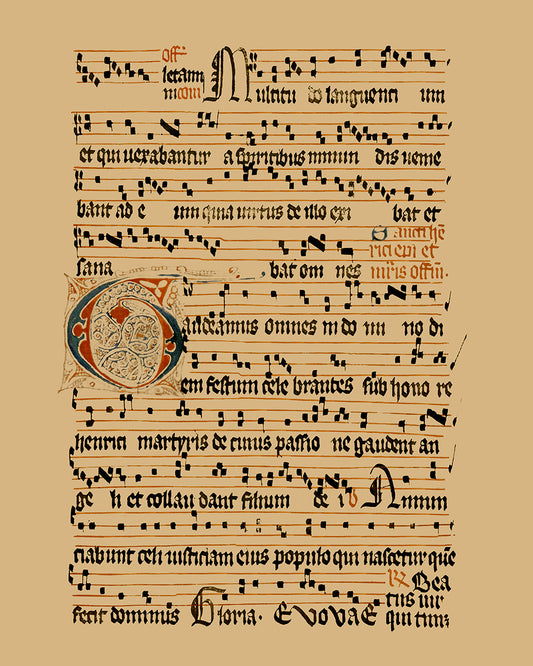 off̄
letamī
Multitu do languenti um
et qui uexabantur a spiritibus inmun dis uenie
bant ad e um quia uirtus de illo exi bat et
Sancti hē
rici epī et
sana bat om nes
Gaudeamus omnes in do mi no di
em festum cele brantes sub hono re
henrici martyris de cuius passio ne gaudent an
ge li et collau dant filium de i V Annun
ciabunt celi iusticiam eius populo qui nascetur que
R Bea
fecit dominus Gloria. EVOVAE
tus uir
qui tim